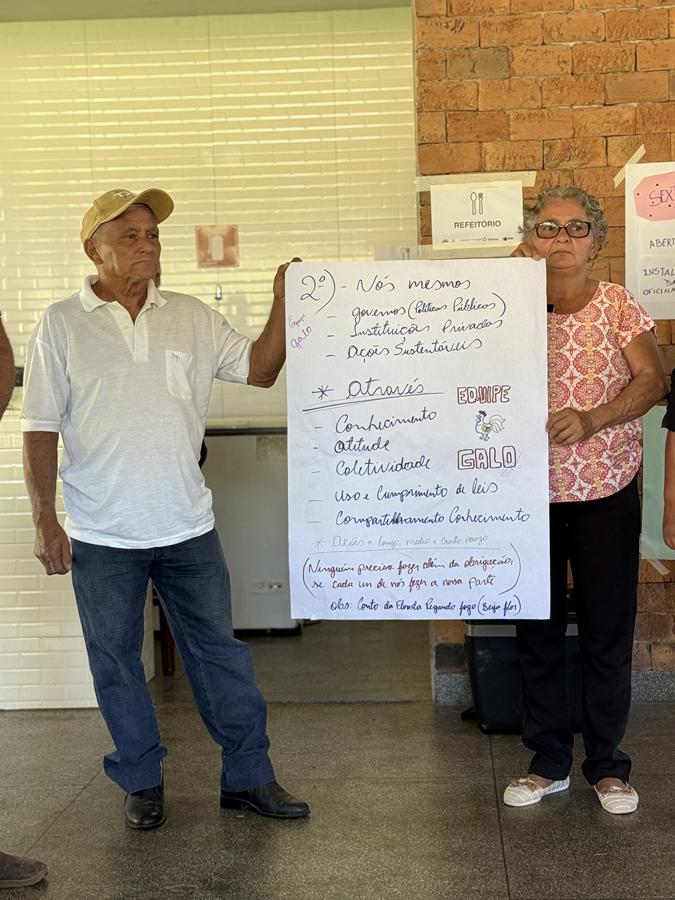 REFEITÓRIO
SEX
ABERT
INSTAL
DA
OFICINA
2º) - Nós mesmos
- governos (Políticas Públicas)
- Instituições Privadas
- Ações Sustentáveis
Equipe
Galo
* Através
- Conhecimento
- Atitude
- Coletividade
- Uso e Cumprimento de leis
- Compartilhamento Conhecimento
* Ações a longo, medio e Curto prazo
EQUIPE
GALO
(Ninguém precisa fazer além da obrigação,
se cada um de nós fizer a nossa parte)
obs: Conto da Floresta Pegando fogo (Beija flor)